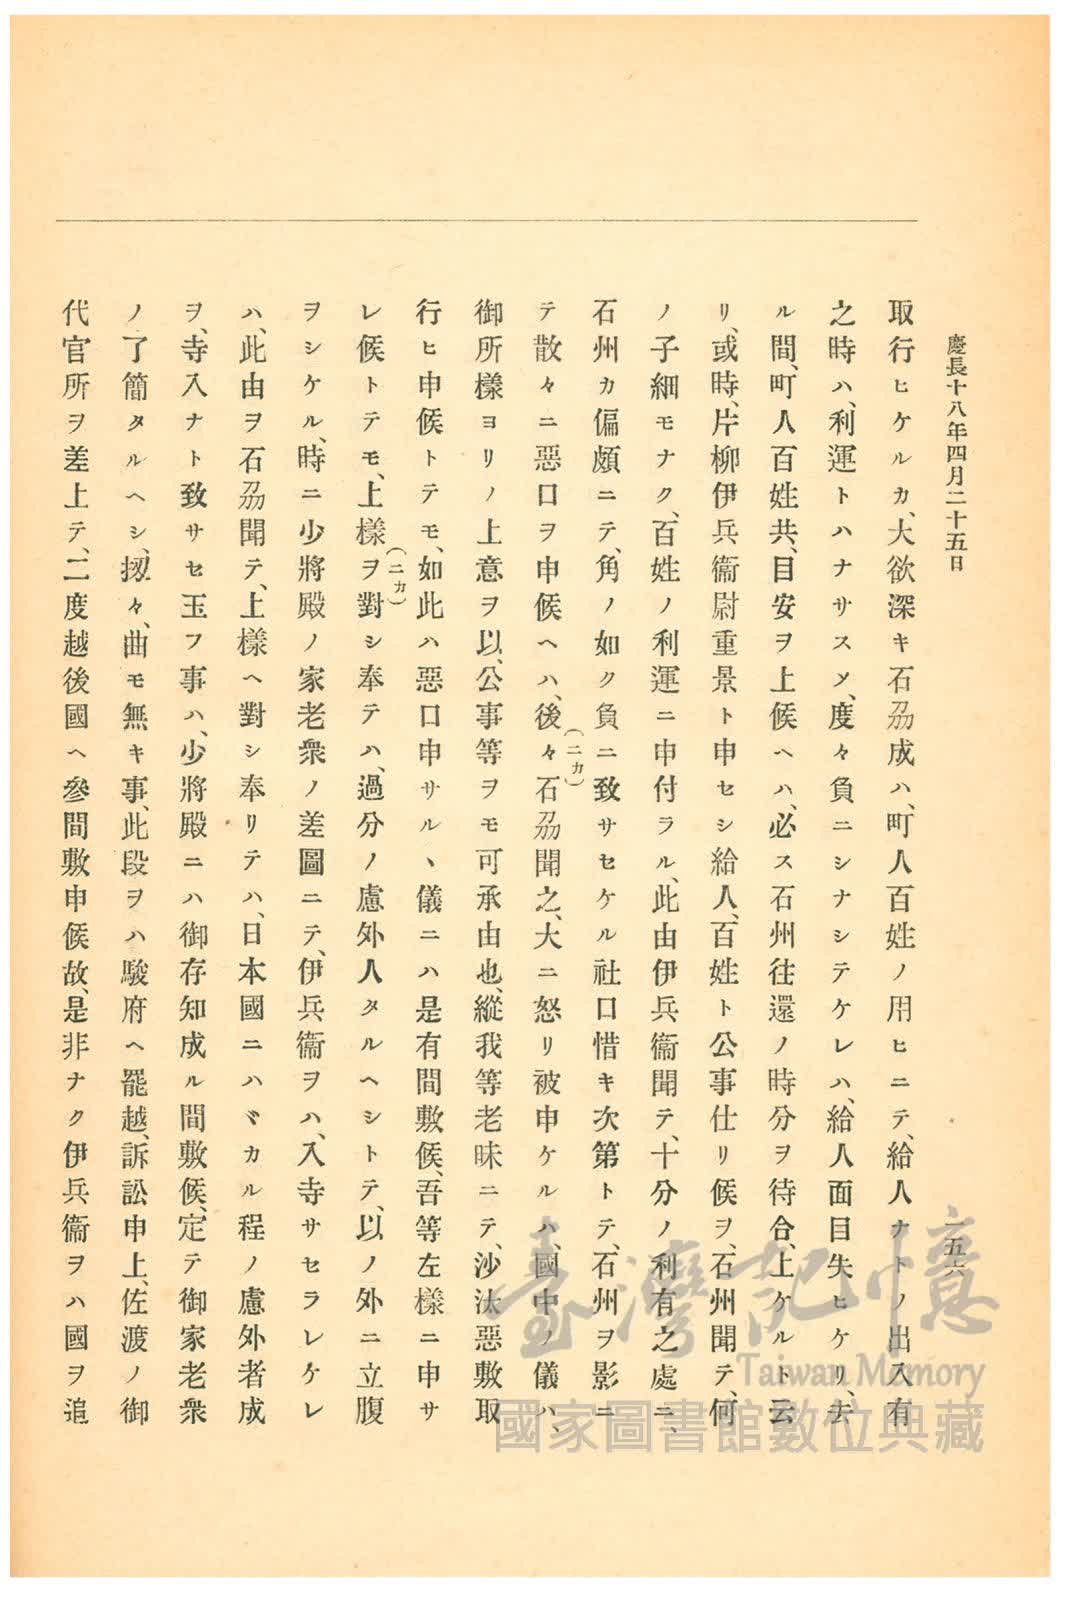 慶長十八年四月二十五日
一五六
取行ヒケルカ、大欲深キ石刕成ハ、町人百姓ノ用ヒニテ、給人ナトノ出入有
之時ハ、利運トハナサスメ、度々負ニシナシテケレハ、給人面目失ヒケリ、去
ル間、町人百姓共、目安ヲ上候ヘハ、必ス石州往還ノ時分ヲ待合、上ケルト云
リ、或時、片柳伊兵衞尉重景ト申セシ給人、百姓ト公事仕リ候ヲ、石州聞テ、何
ノ子細モナク、百姓ノ利運ニ申付ラル、此由伊兵衞聞テ、十分ノ利有之處ニ、
石州カ偏頗ニテ、角ノ如ク負ニ致サセケル社口惜キ次第トテ、石州ヲ影ニ
(ニカ)
テ散々ニ惡口ヲ申候ヘハ、後々石刕聞之、大ニ怒リ被申ケルハ、國中ノ儀ハ、
御所樣ヨリノ上意ヲ以、公事等ヲモ可承由也、縱我等老昧ニテ、沙汰惡敷取
行ヒ申候トテモ、如此ハ惡口申サル丶儀ニハ是有間敷候、吾等左樣ニ申サ
(ニカ)
レ候トテモ、上樣ヲ對シ奉テハ、過分ノ慮外人タルヘシトテ、以ノ外ニ立腹
ヲシケル、時ニ少將殿ノ家老衆ノ差圖ニテ、伊兵衞ヲハ、入寺サセラレケレ
ハ、此由ヲ石刕聞テ、上樣ヘ對シ奉リテハ、日本國ニハヾカル程ノ慮外者成
ヲ、寺入ナト致サセ玉フ事ハ、少將殿ニハ御存知成ル間敷候、定テ御家老衆
ノ了簡タルヘシ、扨々、曲モ無キ事、此段ヲハ駿府ヘ罷越、訴訟申上、佐渡ノ御
代官所ヲ差上テ、二度越後國ヘ參間敷申候故、是非ナク伊兵衞ヲハ國ヲ追
臺灣記憶
Taiwan Memory
國家圖書館數位典藏